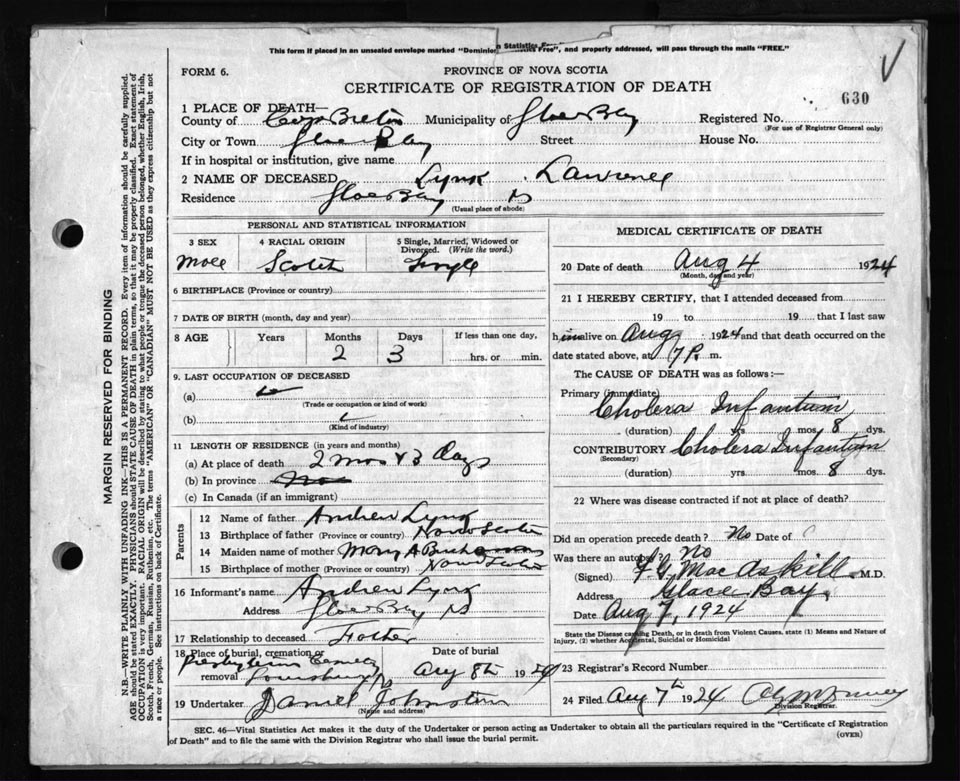 This form if placed in an unsealed envelope marked "Dominion Statistics Free", and properly addressed, will pass through the mails "FREE."
FORM 6.
PROVINCE OF NOVA SCOTIA
CERTIFICATE OF REGISTRATION OF DEATH
630
1 PLACE OF DEATH—
County of Cape Breton Municipality of Glace Bay Registered No.
(For use of Registrar General only)
City or Town Glace Bay Street House No.
If in hospital or institution, give name
2 NAME OF DECEASED Lynk Lawrence
Residence Glace Bay NS
(Usual place of abode)
PERSONAL AND STATISTICAL INFORMATION
3 SEX 4 RACIAL ORIGIN 5 Single, Married, Widowed or Divorced. (Write the word.)
Male Scotch Single
6 BIRTHPLACE (Province or country)
7 DATE OF BIRTH (month, day and year)
8 AGE Years Months Days If less than one day,
2 3 hrs. or min.
9. LAST OCCUPATION OF DECEASED
(a)
(Trade or occupation or kind of work)
(b)
(Kind of industry)
11 LENGTH OF RESIDENCE (in years and months)
(a) At place of death 2 mos & 3 days
(b) In province
(c) In Canada (if an immigrant)
Parents
12 Name of father Andrew Lynk
13 Birthplace of father (Province or country) Nova Scotia
14 Maiden name of mother Mary A
15 Birthplace of mother (Province or country) Nova Scotia
16 Informant's name Andrew Lynk
Address Glace Bay NS
17 Relationship to deceased Father
18 Place of burial, cremation or removal Date of burial
Presbyterian Cemetery Louisburg Aug 8th 1924
19 Undertaker Daniel Johnston
(Name and address)
MEDICAL CERTIFICATE OF DEATH
20 Date of death Aug 4 1924
(Month, day and year)
21 I HEREBY CERTIFY, that I attended deceased from
19 to 19 that I last saw
him alive on Aug 1924 and that death occurred on
date stated above, at 7 P. m.
The CAUSE OF DEATH was as follows:—
Primary (immediate)
Cholera Infantum
(duration) yrs mos. 8 dys.
CONTRIBUTORY Cholera Infantum
(Secondary)
(duration) yrs. mos. 8 dys.
22 Where was disease contracted if not at place of death?
Did an operation precede death? No Date of
Was there an autopsy No
(Signed) MacAskill M.D.
Address Glace Bay
Date Aug 7, 1924
State the Disease causing Death, or in death from Violent Causes, state (1) Means and Nature of Injury, (2) whether Accidental, Suicidal or Homicidal
23 Registrar's Record Number
24 Filed Aug 7th 1924
Division Registrar.
SEC. 46—Vital Statistics Act makes it the duty of the Undertaker or person acting as Undertaker to obtain all the particulars required in the "Certificate of Registration
of Death" and to file the same with the Division Registrar who shall issue the burial permit.
(OVER)
MARGIN RESERVED FOR BINDING
N.B.—WRITE PLAINLY WITH UNFADING INK—THIS IS A PERMANENT RECORD. Every item of information should be carefully supplied.
AGE should be stated EXACTLY. PHYSICIANS should STATE CAUSE OF DEATH in plain terms, so that it may be properly classified. Exact statement of
OCCUPATION is very important. RACIAL ORIGIN will be described by stating to what people or tongue the deceased person belonged, whether English, Irish,
Scotch, French, German, Russian, Ruthenian, etc. The terms "AMERICAN" or "CANADIAN" MUST NOT BE USED as they express citizenship but not
a race or people. See instructions on back of Certificate.